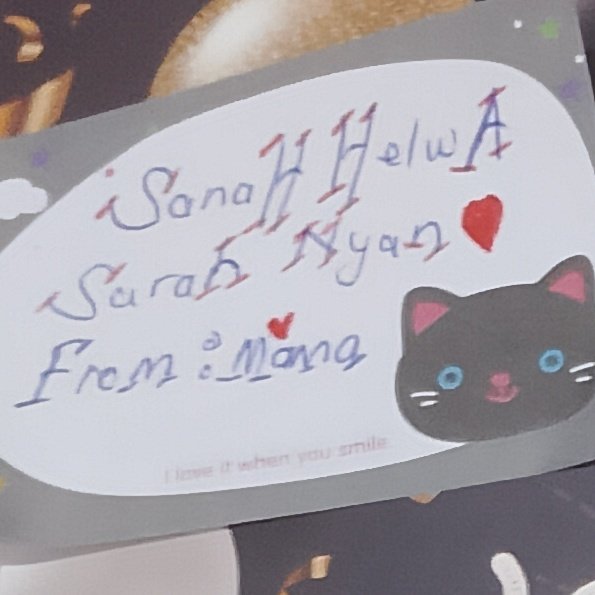 SanaH HelwA
Sarah Nyan
From : Mama
I love it when you smile